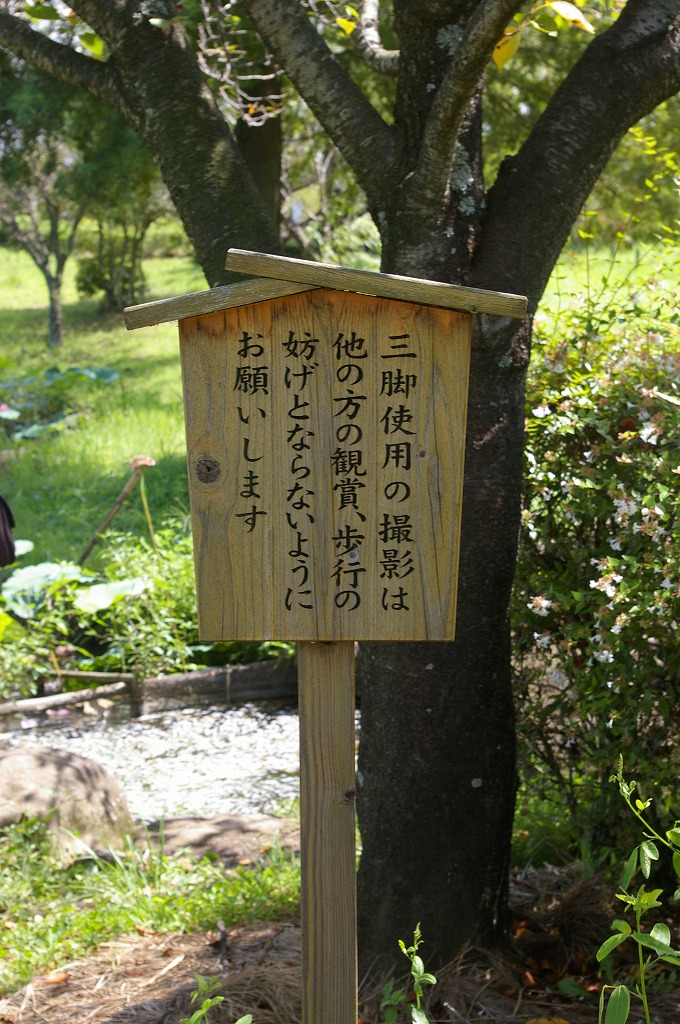 三脚使用の撮影は
他の方の観賞、歩行の
妨げとならないように
お願いします